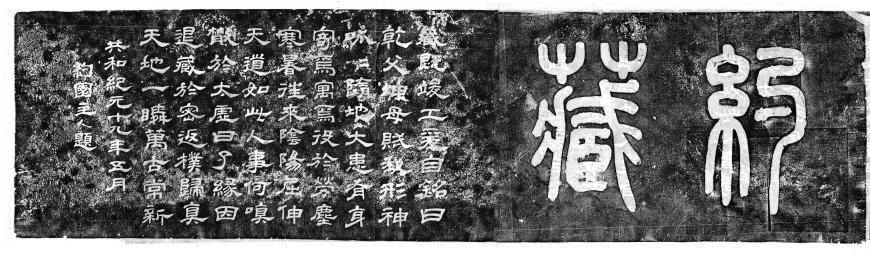 約藏
既竣工爰自銘曰
乾父坤母賦我形神
呱呱墮地大患有身
寄焉寓焉役於勞塵
寒暑往來陰陽屈伸
天道如此人事何嗔
散於太虛曰了緣因
退藏於密返樸歸真
天地一瞬萬古常新
共和紀元十九年五月
約園主人題